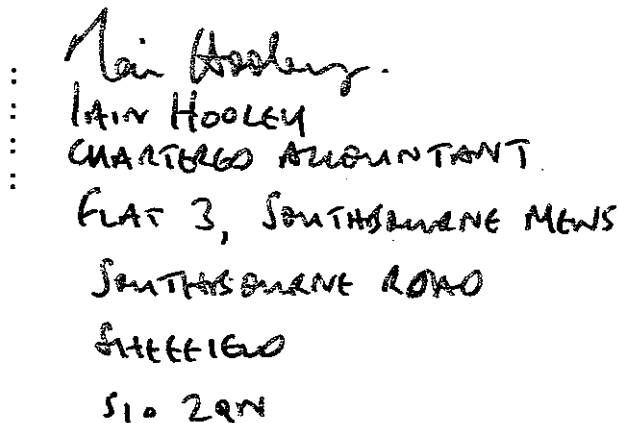 :
: Iain Hooley.
: IAIN HOOLEY
: CHARTERED ACCOUNTANT
FLAT 3, SOUTHBOURNE MEWS
SOUTHBOURNE ROAD
SHEFFIELD
S10 2QN